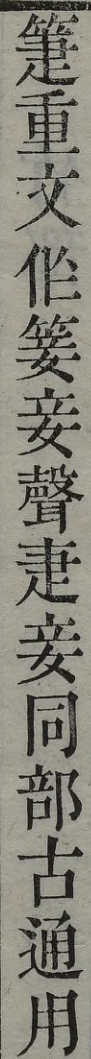 箑重文作䈉妾聲疌妾同部古通用